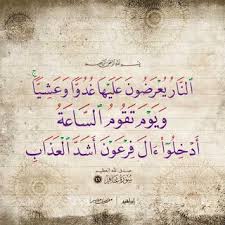 بسم الله الرحمن الرحيم
ٱلنَّارُ يُعْرَضُونَ عَلَيْهَا غُدُوًّا وَعَشِيًّا ۖ
وَيَوْمَ تَقُومُ ٱلسَّاعَةُ
أَدْخِلُوٓا۟ ءَالَ فِرْعَوْنَ أَشَدَّ ٱلْعَذَابِ
صدق الله العظيم
سورة غافر